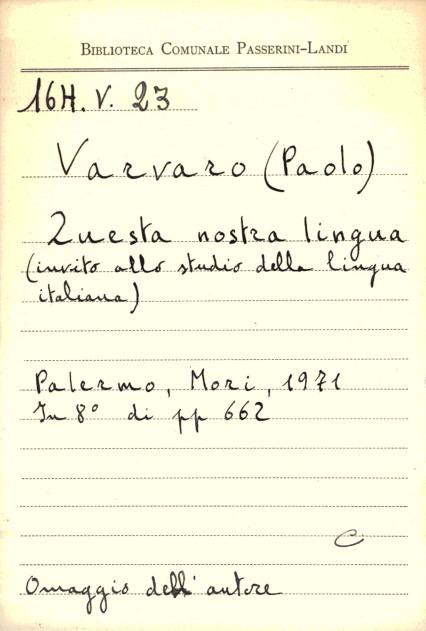 BIBLIOTECA COMUNALE PASSERINI-LANDI
16H. V. 23
Varvaro (Paolo)
Questa nostra lingua
(invito allo studio della lingua
italiana)
Palermo, Mori, 1971
In 8° di pp 662
C
Omaggio dell'autore